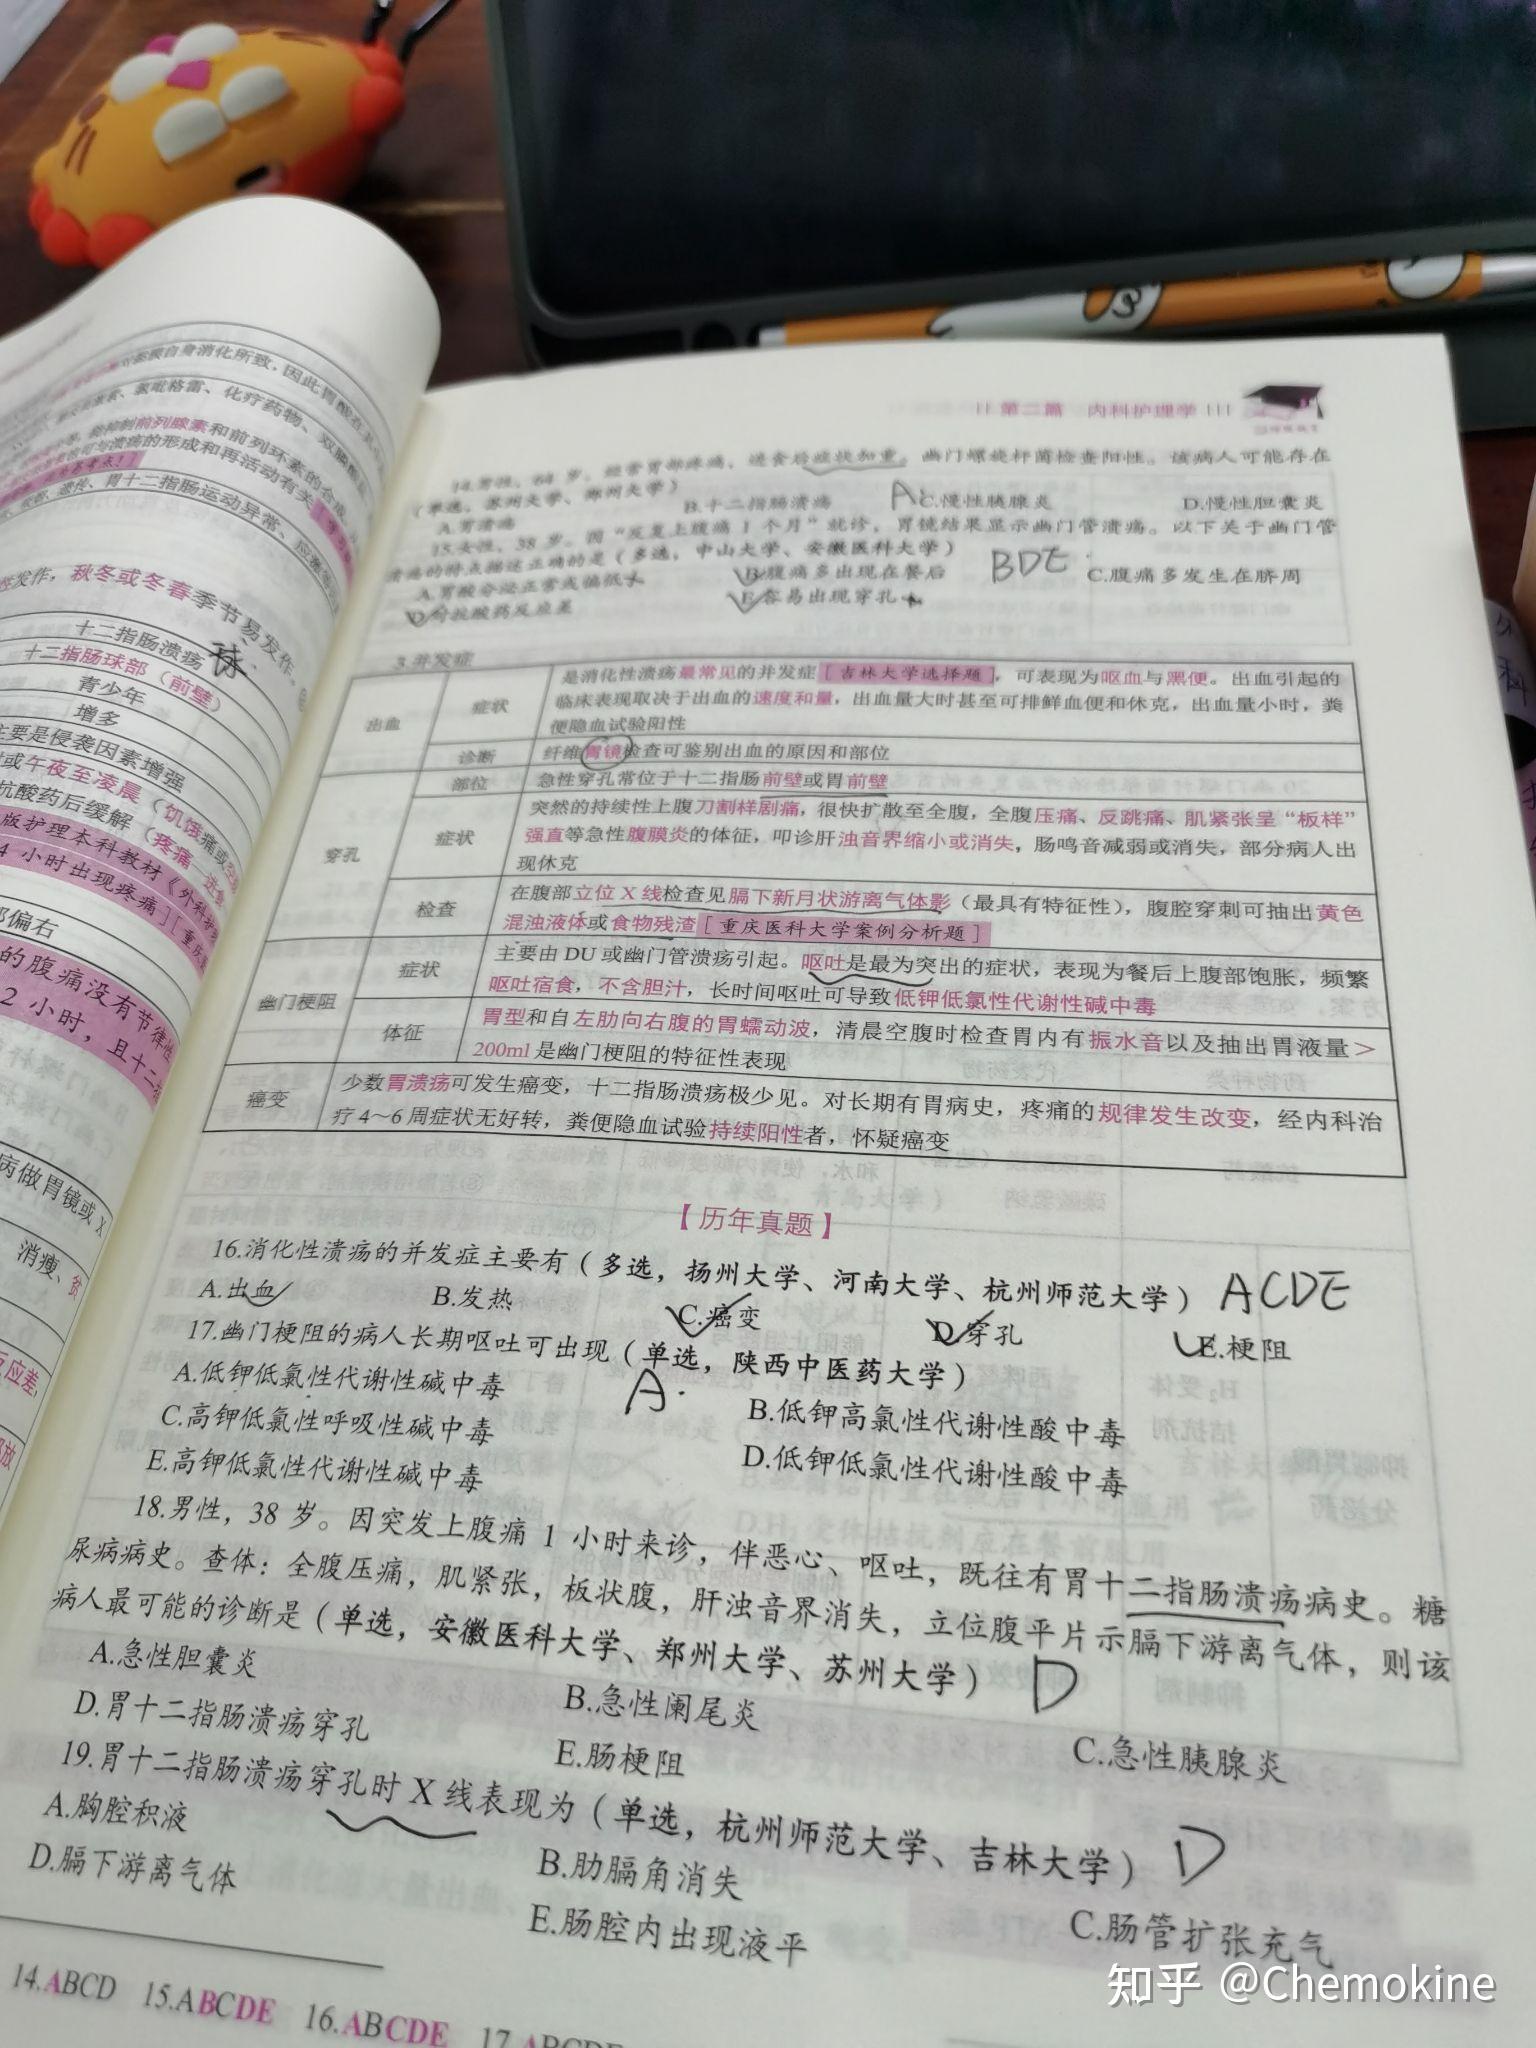 第二篇 内科护理学
14.男性，64 岁。经常胃部疼痛，进食后症状加重。幽门螺旋杆菌检查阳性。该病人可能存在
（单选，苏州大学、郑州大学）
A.胃溃疡 B.十二指肠溃疡 A C.慢性胰腺炎 D.慢性胆囊炎
15.女性，38 岁。因“反复上腹痛 1 个月”就诊，胃镜结果显示幽门管溃疡。以下关于幽门管
溃疡的特点描述正确的是（多选，中山大学、安徽医科大学） BDE
A.胃酸分泌正常或偏低 B.腹痛多出现在餐后 C.腹痛多发生在脐周
D.对抗酸药反应差 E.容易出现穿孔
3.并发症
出血 症状 是消化性溃疡最常见的并发症[吉林大学选择题]，可表现为呕血与黑便。出血引起的
临床表现取决于出血的速度和量，出血量大时甚至可排鲜血便和休克，出血量小时，粪
便隐血试验阳性
诊断 纤维胃镜检查可鉴别出血的原因和部位
穿孔 部位 急性穿孔常位于十二指肠前壁或胃前壁
症状 突然的持续性上腹刀割样剧痛，很快扩散至全腹，全腹压痛、反跳痛、肌紧张呈“板样”
强直等急性腹膜炎的体征，叩诊肝浊音界缩小或消失，肠鸣音减弱或消失，部分病人出
现休克
检查 在腹部立位 X 线检查见膈下新月状游离气体影（最具有特征性），腹腔穿刺可抽出黄色
混浊液体或食物残渣[重庆医科大学案例分析题]
幽门梗阻 症状 主要由 DU 或幽门管溃疡引起。呕吐是最为突出的症状，表现为餐后上腹部饱胀，频繁
呕吐宿食，不含胆汁，长时间呕吐可导致低钾低氯性代谢性碱中毒
体征 胃型和自左肋向右腹的胃蠕动波，清晨空腹时检查胃内有振水音以及抽出胃液量＞
200ml 是幽门梗阻的特征性表现
癌变 少数胃溃疡可发生癌变，十二指肠溃疡极少见。对长期有胃病史，疼痛的规律发生改变，经内科治
疗 4～6 周症状无好转，粪便隐血试验持续阳性者，怀疑癌变
【历年真题】
16.消化性溃疡的并发症主要有（多选，扬州大学、河南大学、杭州师范大学） ACDE
A.出血 B.发热 C.癌变 D.穿孔 E.梗阻
17.幽门梗阻的病人长期呕吐可出现（单选，陕西中医药大学） A
A.低钾低氯性代谢性碱中毒 B.低钾高氯性代谢性酸中毒
C.高钾低氯性呼吸性碱中毒 D.低钾低氯性代谢性酸中毒
E.高钾低氯性代谢性碱中毒
18.男性，38 岁。因突发上腹痛 1 小时来诊，伴恶心、呕吐，既往有胃十二指肠溃疡病史。糖
尿病病史。查体：全腹压痛，肌紧张，板状腹，肝浊音界消失，立位腹平片示膈下游离气体，则该
病人最可能的诊断是（单选，安徽医科大学、郑州大学、苏州大学） D
A.急性胆囊炎 B.急性阑尾炎 C.急性胰腺炎
D.胃十二指肠溃疡穿孔 E.肠梗阻
19.胃十二指肠溃疡穿孔时 X 线表现为（单选，杭州师范大学、吉林大学） D
A.胸腔积液 B.肋膈角消失 C.肠管扩张充气
D.膈下游离气体 E.肠腔内出现液平
14.ABCD 15.ABCDE 16.ABCDE 17.ABCDE
自身消化所致，因此胃酸在
氯吡格雷、化疗药物、双膦酸
抑制前列腺素和前列环素的合成
可与溃疡的形成和再活动有关
遗传、胃十二指肠运动异常、应激
发作，秋冬或冬春季节易发作。
十二指肠溃疡 球
十二指肠球部（前壁）
青少年
增多
主要是侵袭因素增强
或午夜至凌晨（饥饿痛或
抗酸药后缓解（疼痛
版护理本科教材《外科护
4 小时出现疼痛][重庆
部偏右
的腹痛没有节律性
2 小时，且十二指
病做胃镜或 X
消瘦、贫
反应差
知乎 @Chemokine